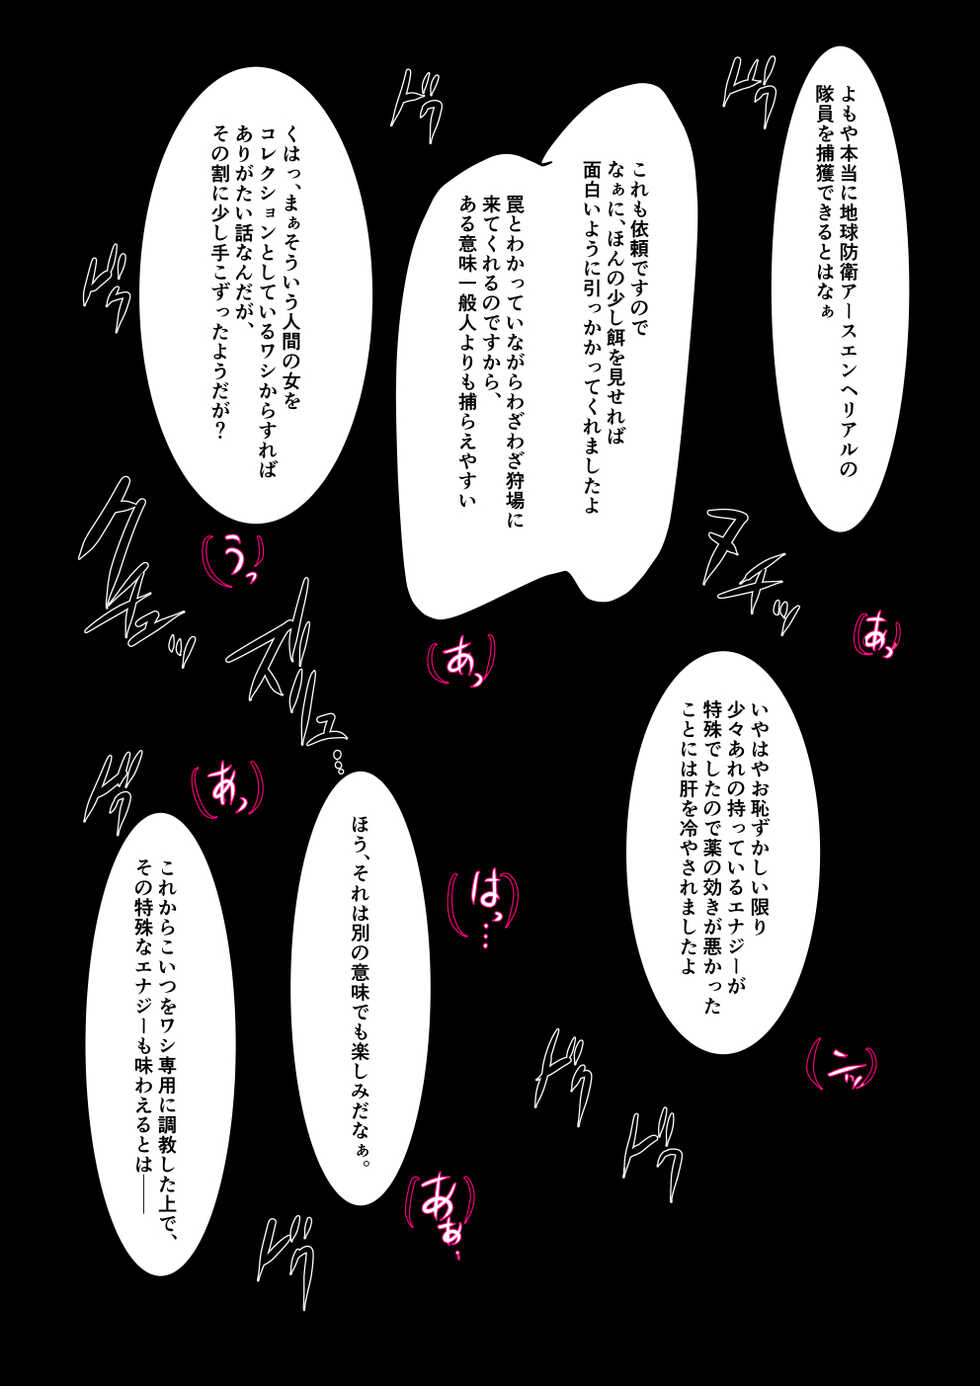 よもや本当に地球防衛アースエンヘリアルの
隊員を捕獲できるとはなぁ
ドクッ
これも依頼ですので
なぁに、ほんの少し餌を見せれば
面白いように引っかかってくれましたよ
罠とわかっていながらわざわざ狩場に
来てくれるのですから、
ある意味一般人よりも捕らえやすい
くはっ、まぁそういう人間の女を
コレクションとしているワシからすれば
ありがたい話なんだが、
その割に少し手こずったようだが？
ヌチッ
(あっ)
(あっ)
(うっ)
グチュッ
ズリュ…
いやはやお恥ずかしい限り
少々あれの持っているエナジーが
特殊でしたので薬の効きが悪かった
ことには肝を冷やされましたよ
(はっ…)
ほう、それは別の意味でも楽しみだなぁ。
(あっ)
これからこいつをワシ専用に調教した上で、
その特殊なエナジーも味わえるとは――